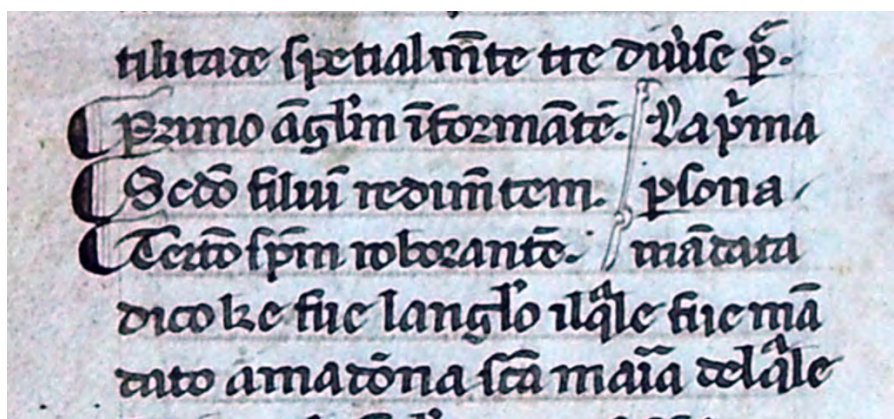 tilitade spetialm̄te tre diuise ꝑ̄.
Primo āgl̓m īformātē. La p̓ma
Secd̄o filiuī redim̄tem. ꝑsona
Tertō sp̄m roborantē. mādata
dico ke fue langl̓o ilq̄le fue mā
dato a madōna sc̄a maīa delq̄le